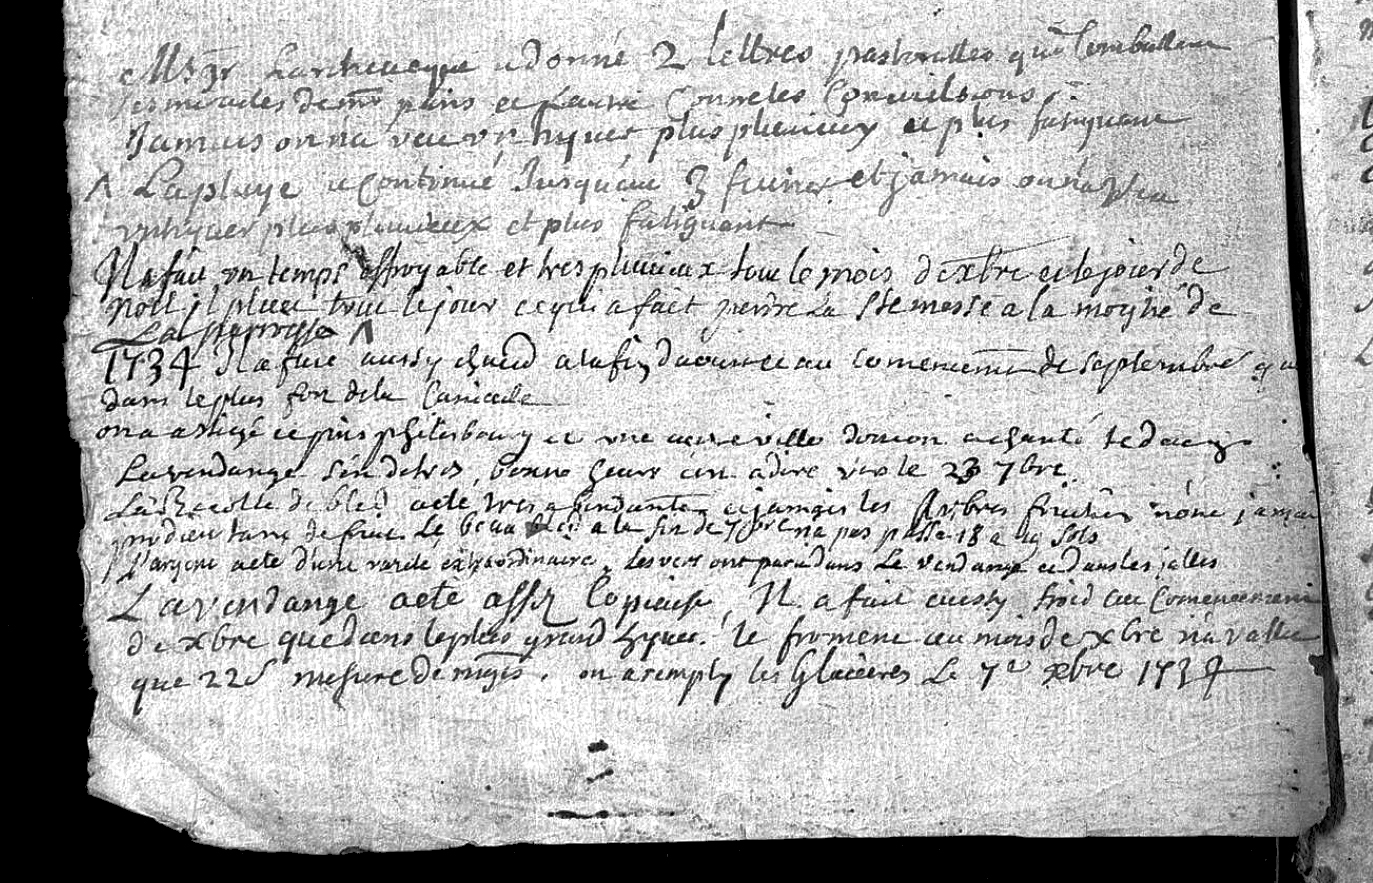 Msgr Larcheveque a donné 2 lettres pastoralles qui combattent
les miracles de mr paris et l'autre contre les Convulsions.
Jamais on na veu un hyver plus pluvieux et plus fatiguant
Λ La pluye a Continué Jusquau 3 fevrier et jamais on na veu
un hyver plus pluvieux et plus fatiguant
Il a fait un temps effroyable et tres pluvieux tout le mois dexbre et le jour de
noel il plut tout le jour ce qui a fait perdre la Ste messe a la moytié de
La paroisse Λ
1734 Il a fait aussy chaud a la fin daoust et au comencemt de septembre que
dans le plus fort dela Canicule
on a assiegé et pris philisbourg et une autre ville dont on a chanté te deum
La vendange sen de tres bonne heure cest a dire vers le 23 7bre
La Recolte de bled a eté tres abondante et jamais les Arbres fruitiers nont jamais
produit tant de fruit. Le beau bled a la fin de 7bre na pas passé 18 a 19 sols
L'argent a eté d'une rareté extraordinaire. Les vers ont paru dans Le vendange et dans les
La vendange a eté assez copieuse, Il a fait aussy froid au Comencement
de xbre que dans le plus grand hyver. le froment au mois de xbre na vallu
que 22s mesure de on a remply les Glacieres Le 7e xbre 1734